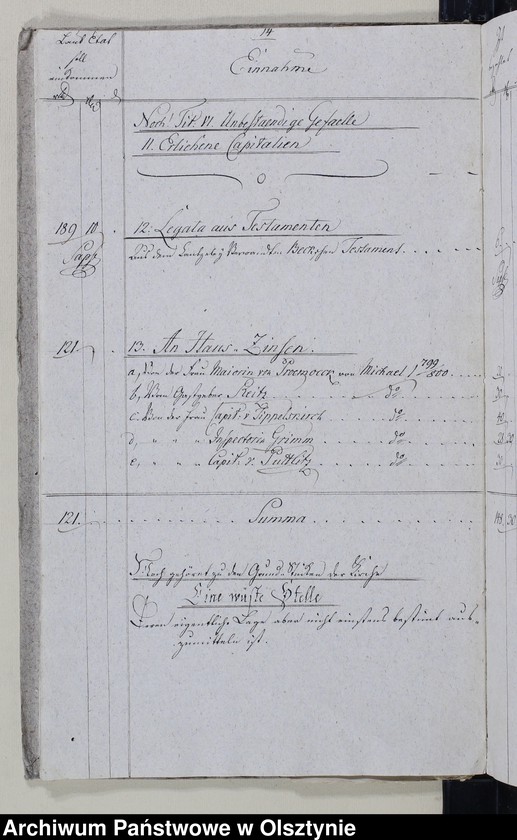 14
Laut Etat
soll
einkommen
Einnahme
Noch Tit VI. Unbestaendige Gefaelle
11. Erlichene Capitalien
0
189 10 12. Legata aus Testamenten
aus dem Beckschen Testament
121. 13. An Haus-Zinsen.
a, Von der Frau Maiorin von Troemzoeck von Michael 1799/800
b, Vom Gastgeber Reitz do
c. Von der Frau Capit. v. Tippelskirch do
d, " " " Inspectorin Grimm do
e, " " " Capit. v. Puttlitz do
121. Summa
Noch gehört zu den Grund-Stücken der Kirche
Eine wüste Stelle
Deren eigentliche Lage aber nicht einstens bestimt aus-
zumitteln ist.
Archiwum Państwowe w Olsztynie